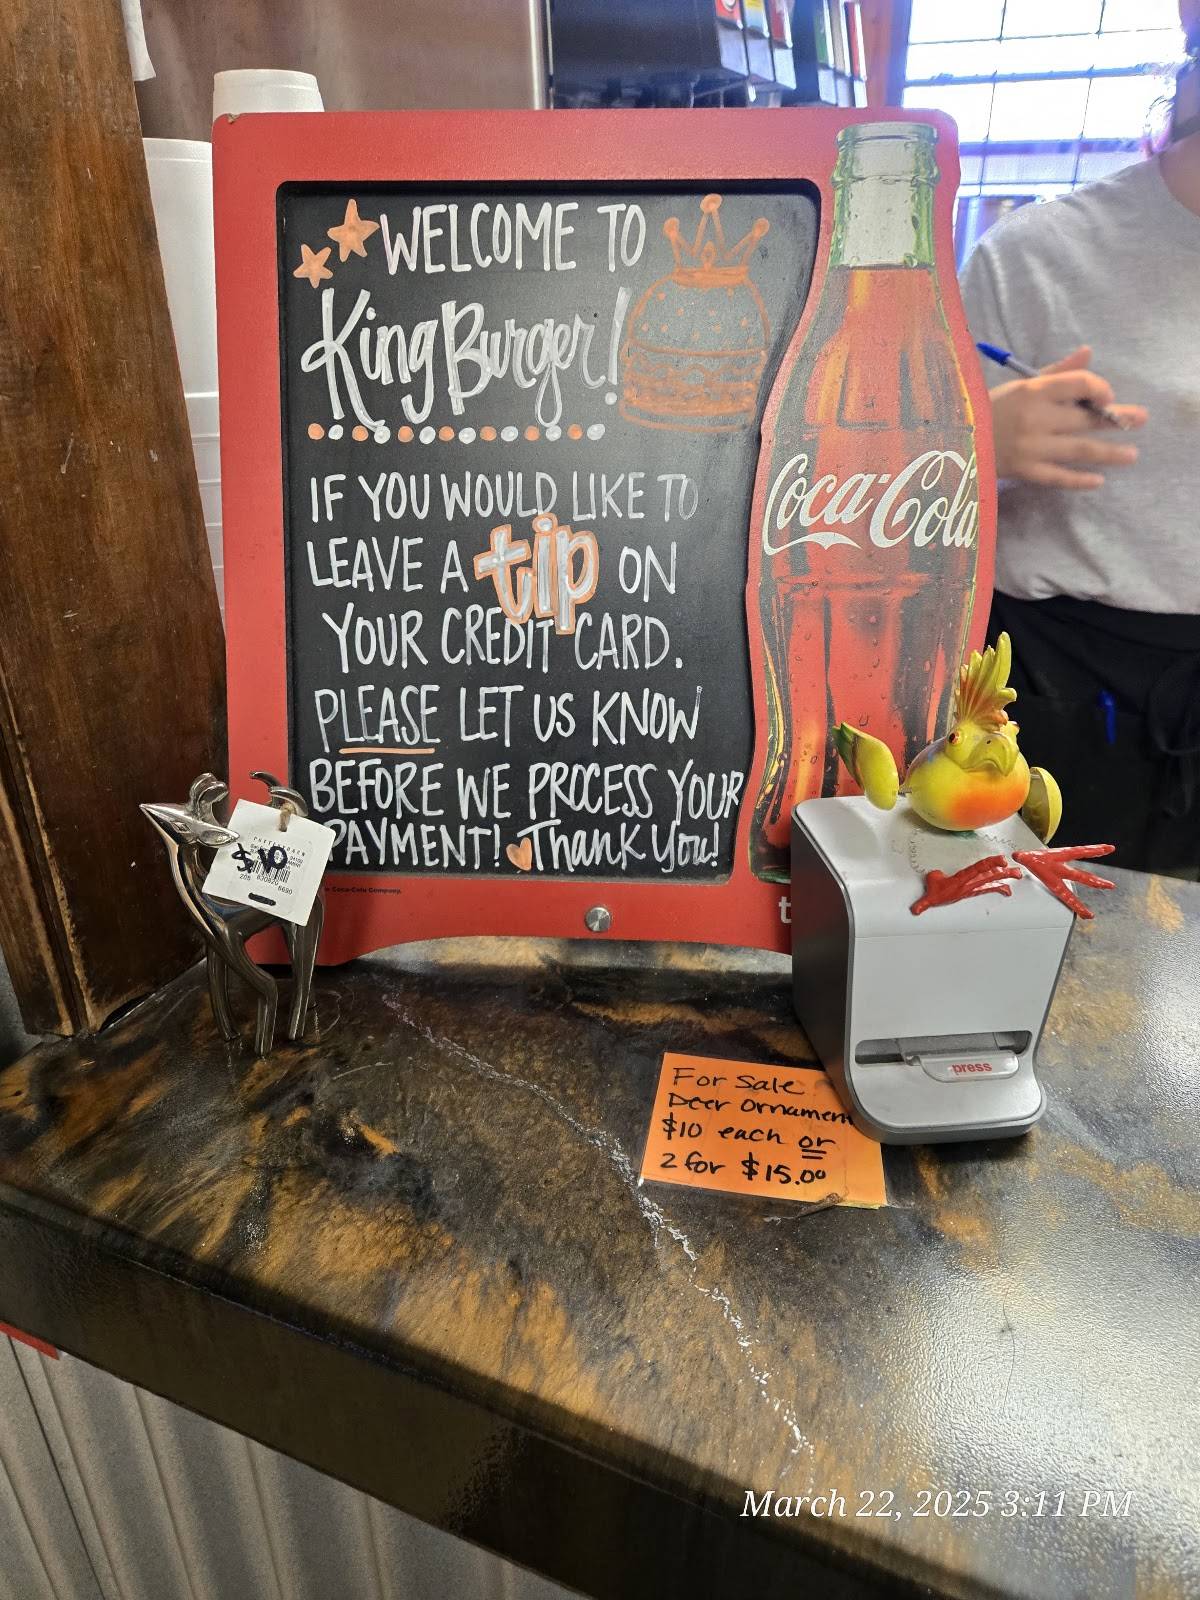 WELCOME TO
King Burger!
IF YOU WOULD LIKE TO
LEAVE A tip ON
YOUR CREDIT CARD.
PLEASE LET US KNOW
BEFORE WE PROCESS YOUR
PAYMENT! Thank You!
Coca-Cola
Coca-Cola Company.
t
$10
press
For Sale
Deer Ornament
$10 each or
2 for $15.00
March 22, 2025 3:11 PM